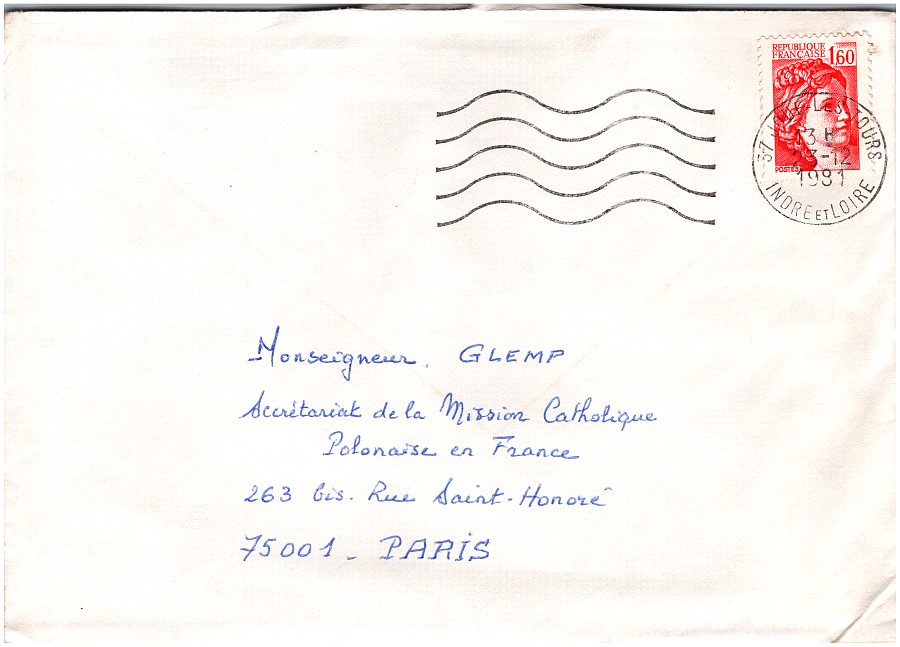 REPUBLIQUE
FRANÇAISE 1,60
POSTES
37 JOUE-LES-TOURS
13 H
23-12
1981
INDRE ET LOIRE
Monseigneur. GLEMP
Secrétariat de la Mission Catholique
Polonaise en France
263 bis. Rue Saint-Honoré
75001 - PARIS